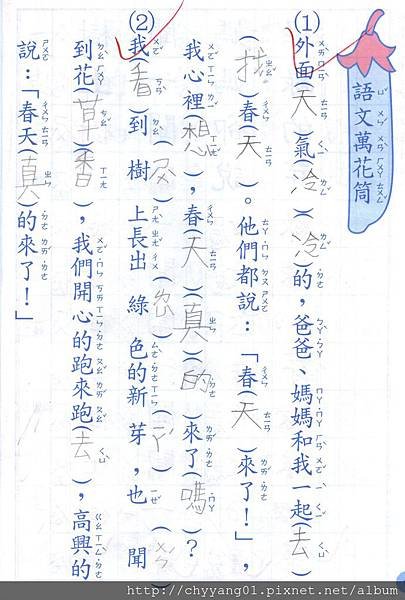 語文萬花筒
(1)外面(天)氣(冷)(冷)的，爸爸、媽媽和我一起(去)
(找)春(天)。他們都說：「春(天)來了！」，
我心裡(想)，春(天)(真)(的)來了(嗎)？
(2)我(看)到樹上長出綠色的新芽，也聞
到花(草)(香)，我們開心的跑來跑(去)，高興的
說：「春天(真)的來了！」
http://chyyang01.pixnet.net/album